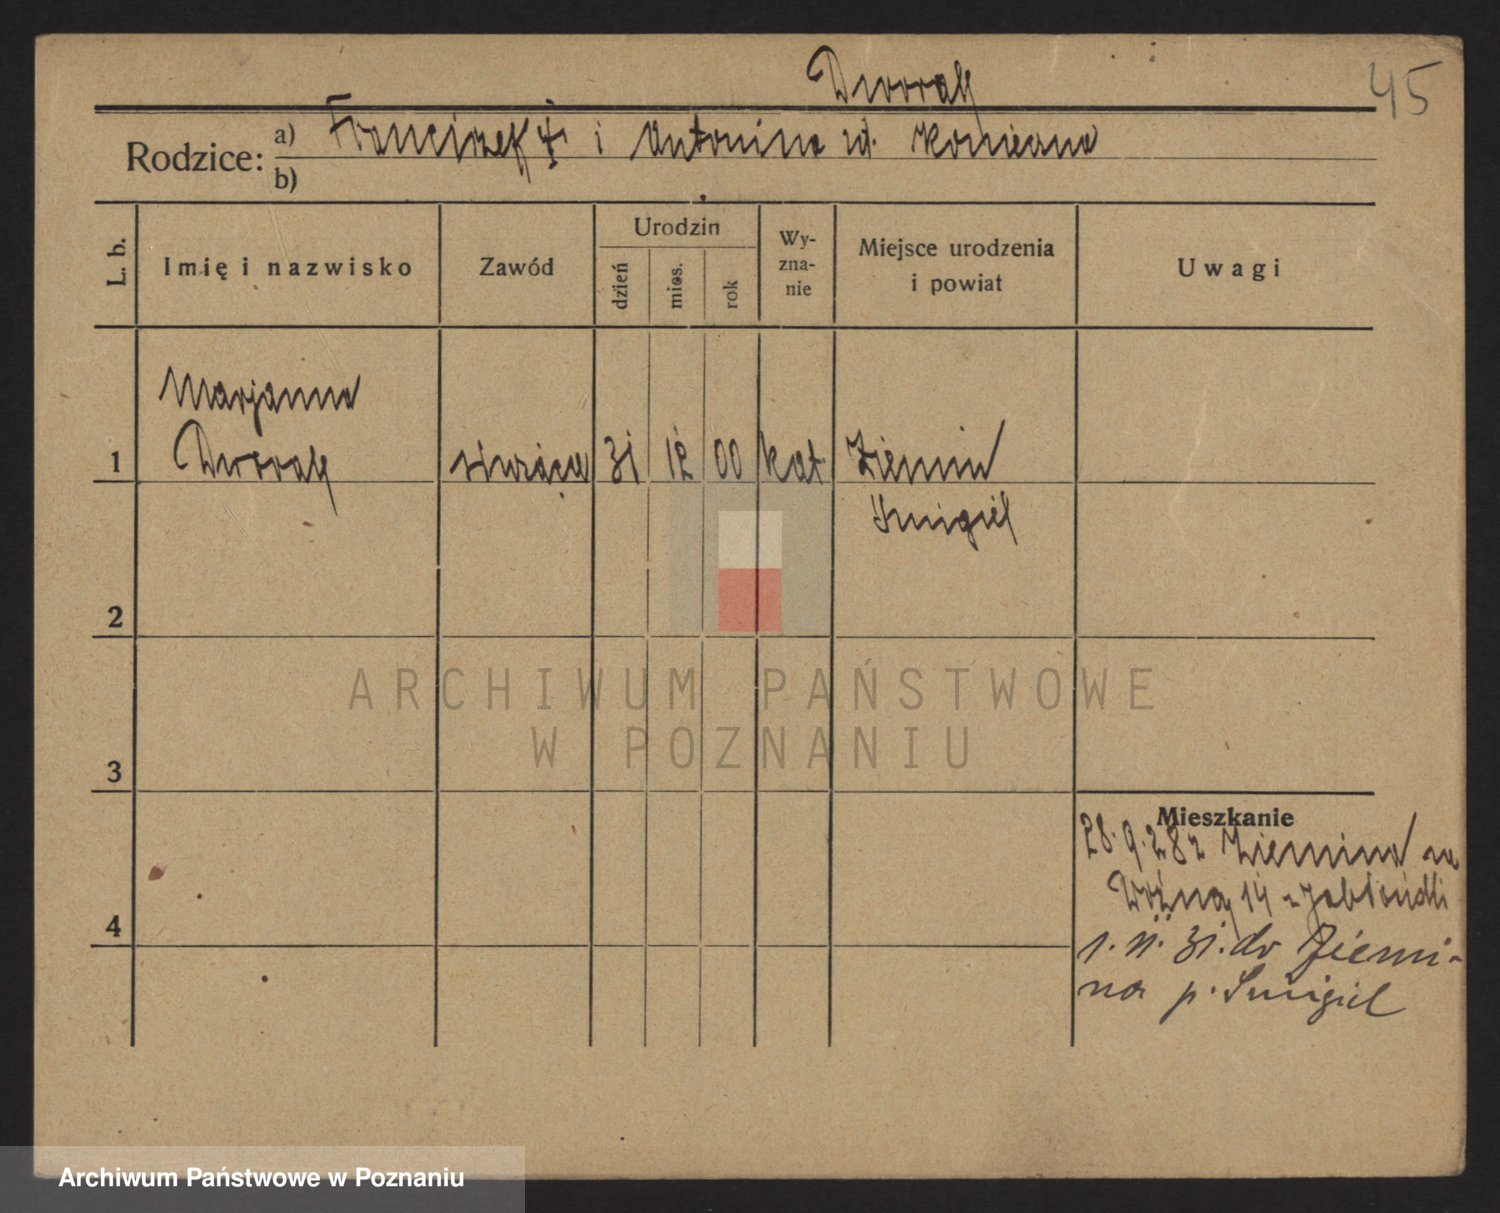 Dworak
45
Rodzice:
a) Franciszek i Antonina
b)
L. b.
Imię i nazwisko
Zawód
Urodzin
dzień
mies.
rok
Wy-
zna-
nie
Miejsce urodzenia
i powiat
Uwagi
Marjanna
1 Dworak służąca 31 12 00 kat. Ziemin
Śmigiel
2
ARCHIWUM PAŃSTWOWE
W POZNANIU
3
Mieszkanie
28.9.28 z Ziemina na
Woźną 14
4
1. 11. 31. do Ziemi-
na p. Śmigiel
Archiwum Państwowe w Poznaniu